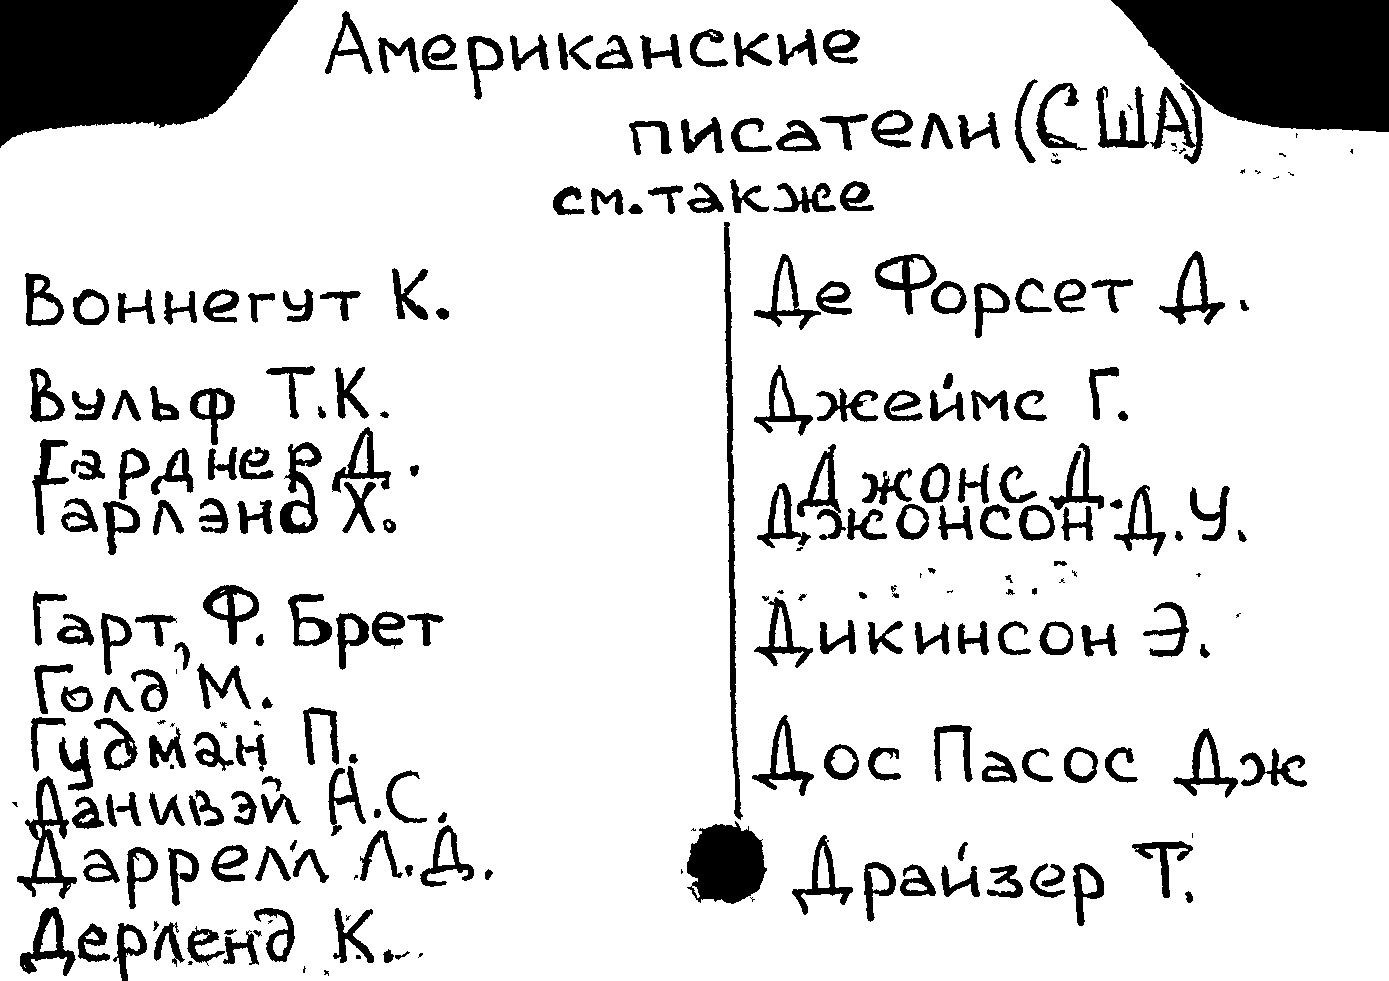 Американские
писатели (США)
см. также
Воннегут К.
Вульф Т.К.
Гарднер Д.
Гарлэнд Х.
Гарт, Ф. Брет
Голд М.
Гудман П.
Данивэй А.С.
Даррелл Л.Д.
Дерленд К.
Де Форсет Д.
Джеймс Г.
Джонс Д.
Джонсон Д.У.
Дикинсон Э.
Дос Пасос Дж
Драйзер Т.